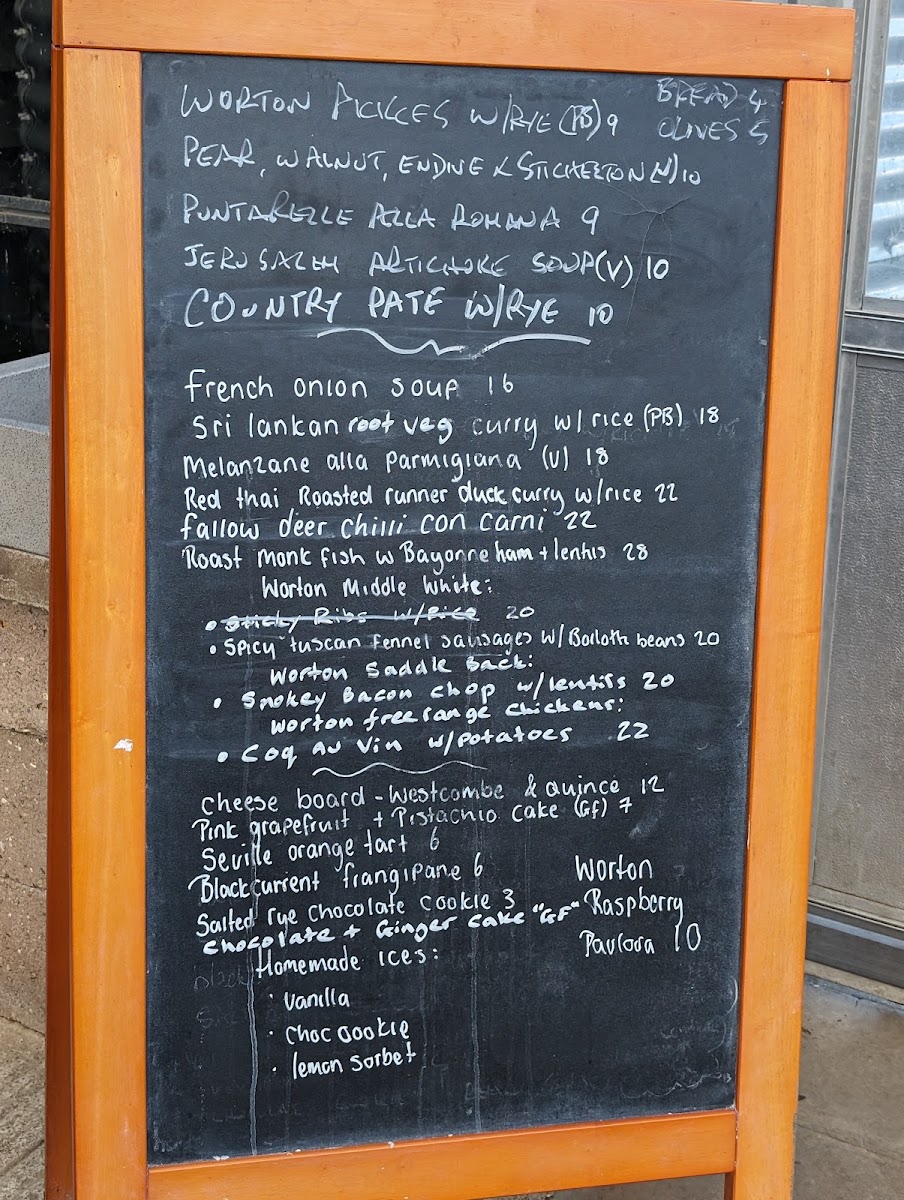 WORTON PICKLES W/RYE (PB) 9
BREAD 4
OLIVES 5
PEAR, WALNUT, ENDIVE & STICHELTON (N) 10
PUNTARELLE ALLA ROMANA 9
JERUSALEM ARTICHOKE SOUP (V) 10
COUNTRY PATE W/RYE 10
french onion soup 16
Sri lankan root veg curry w/ rice (PB) 18
Melanzane alla parmigiana (V) 18
Red thai Roasted runner duck curry w/rice 22
fallow deer chilli con carni 22
Roast Monk fish w Bayonne ham + lentils 28
Worton Middle White:
• Sticky Ribs w/Rice 20
• SPicy tuscan fennel sausages w/ Borlotti beans 20
Worton Saddle Back:
• Smokey Bacon Chop w/lentils 20
Worton free range chickens:
• Coq Au Vin w/potatoes 22
Cheese board - Westcombe & quince 12
Pink grapefruit + Pistachio cake (Gf) 7
Seville orange tart 6
Blackcurrent frangipane 6
Salted rye chocolate cookie 3
Chocolate + Ginger cake "GF"
Worton
Raspberry
Pavlova 10
Homemade ices:
· vanilla
· Choc cookie
· lemon sorbet